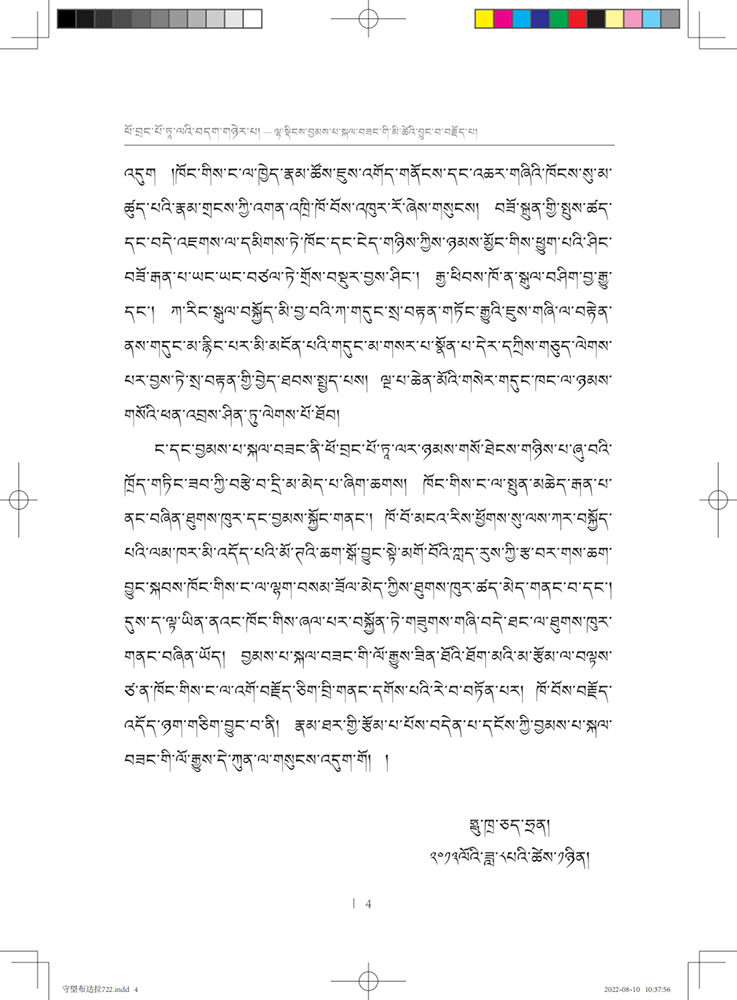 ཕོ་བྲང་པོ་ཏཱ་ལའི་བདག་གཉེར་པ། — ལྷ་སྡིངས་བྱམས་པ་སྐལ་བཟང་གི་མི་ཚེའི་བྱུང་བ་བརྗོད་པ།
འདུག །ཁོང་གིས་ང་ལ་ཁྱེད་རྣམ་ཚོས་ཇུས་འགོད་གནོངས་དང་འཆར་གཞིའི་ཁོངས་སུ་མ་
ཚུད་པའི་རྣམ་གྲངས་ཀྱི་འགན་འཁྲི་ཁོ་བོས་འཁུར་རོ་ཞེས་གསུངས། བཟོ་སྐྲུན་གྱི་སྤུས་ཚད་
དང་བདེ་འཇགས་ལ་དམིགས་ཏེ་ཁོང་དང་ངེད་གཉིས་ཀྱིས་ཉམས་མྱོང་གིས་ཕྱུག་པའི་ཤིང་
བཟོ་རྒན་པ་ཡང་ཡང་བཙལ་ཏེ་གྲོས་བསྡུར་བྱས་ཤིང་། རྒྱ་ཕིབས་ཁོ་ན་སྒུལ་བཤིག་བྱ་རྒྱུ་
དང་། ཀ་རིང་སྒུལ་བསྐྱོད་མི་བྱ་བའི་ཀ་གདུང་སྲ་བརྟན་གཏོང་རྒྱུའི་ཇུས་གཞི་ལ་བརྟེན་
ནས་གདུང་མ་རྙིང་པར་མི་མངོན་པའི་གདུང་མ་གསར་པ་སྣོན་པ་དེར་དཀྲིས་གཅུད་ལེགས་
པར་བྱས་ཏེ་སྲ་བརྟན་གྱི་བྱེད་ཐབས་སྤྱད་པས། ལྔ་པ་ཆེན་མོའི་གསེར་གདུང་ཁང་ལ་ཉམས་
གསོའི་ཕན་འབྲས་ཤིན་ཏུ་ལེགས་པོ་ཐོབ།
ང་དང་བྱམས་པ་སྐལ་བཟང་ནི་ཕོ་བྲང་པོ་ཏཱ་ལར་ཉམས་གསོ་ཐེངས་གཉིས་པ་ཞུ་བའི་
ཁྲོད་གཏིང་ཟབ་ཀྱི་བརྩེ་བ་དྲི་མ་མེད་པ་ཞིག་ཆགས། ཁོང་གིས་ང་ལ་སྤུན་མཆེད་རྒན་པ་
ནང་བཞིན་ཐུགས་ཁུར་དང་བྱམས་སྐྱོང་གནང་། ཁོ་བོ་མངའ་རིས་ཕྱོགས་སུ་ལས་ཀར་བསྐྱོད་
པའི་ལམ་ཁར་མི་འདོད་པའི་མོ་ཊའི་ཆག་སྒོ་བྱུང་སྟེ་མགོ་བོའི་ཀླད་རུས་ཀྱི་རྩ་བར་གས་ཆག་
བྱུང་སྐབས་ཁོང་གིས་ང་ལ་ལྷག་བསམ་ཟོལ་མེད་ཀྱིས་ཐུགས་ཁུར་ཚད་མེད་གནང་བ་དང་།
དུས་ད་ལྟ་ཡིན་ནའང་ཁོང་གིས་ཞལ་པར་བསྐྱོན་ཏེ་གཟུགས་གཞི་བདེ་ཐང་ལ་ཐུགས་ཁུར་
གནང་བཞིན་ཡོད། བྱམས་པ་སྐལ་བཟང་གི་ལོ་རྒྱུས་ཟིན་ཐོའི་ཐོག་མའི་མ་རྩོམ་ལ་བལྟས་
ཙ་ན་ཁོང་གིས་ང་ལ་འགོ་བརྗོད་ཅིག་བྲི་གནང་དགོས་པའི་རེ་བ་བཏོན་པར། ཁོ་བོས་བརྗོད་
འདོད་ཉག་གཅིག་བྱུང་བ་ནི། རྣམ་ཐར་གྱི་རྩོམ་པ་པོས་བདེན་པ་དངོས་ཀྱི་བྱམས་པ་སྐལ་
བཟང་གི་ལོ་རྒྱུས་དེ་ཀུན་ལ་གསུངས་འདུག་གོ། །
ཧྥུ་ཁྲ་ཅད་ཧྲན།
༢༠༡༣ལོའི་ཟླ་༨པའི་ཚེས་༡ཉིན།
| 4
守望布达拉722.indd 4 2022-08-10 10:37:56